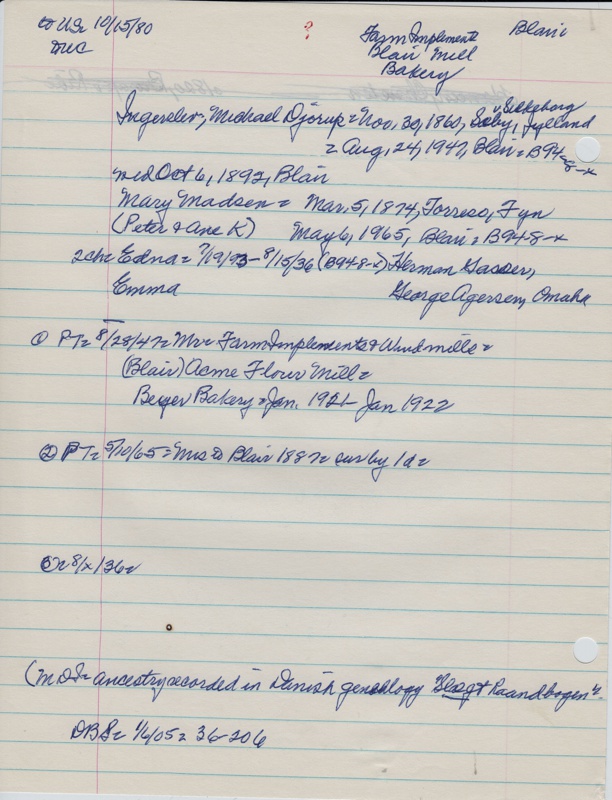 to US= 10/15/80 ? Farm Implements Blair
Blair Mill
Bakery
Silkeborg
Ingerslev, Michael Djorup = Nov. 30, 1860, Seby, Jylland
= Aug. 24, 1947, Blair = B94-8-x
med Oct 6, 1892, Blair
Mary Madsen = Mar. 5, 1874, Torreso, Fyn
(Peter & Ane K) May 6, 1965, Blair = B948-x
2ch= Edna = 7/19/93 - 8/15/36 (B948-x) Herman Gasser,
Emma George Agersen, Omaha
① PT= 8/28/47= Mr= Farm Implements & Windmills=
(Blair) Acme Flour Mill=
Beyer Bakery = Jan. 1921 - Jan 1922
② PT= 5/10/65 = Mrs to Blair 1887= sur by 1d=
8/x/36=
(MDI= ancestry recorded in Danish genealogy " Haandbogen"=
DBS= 1/6/05= 36-206